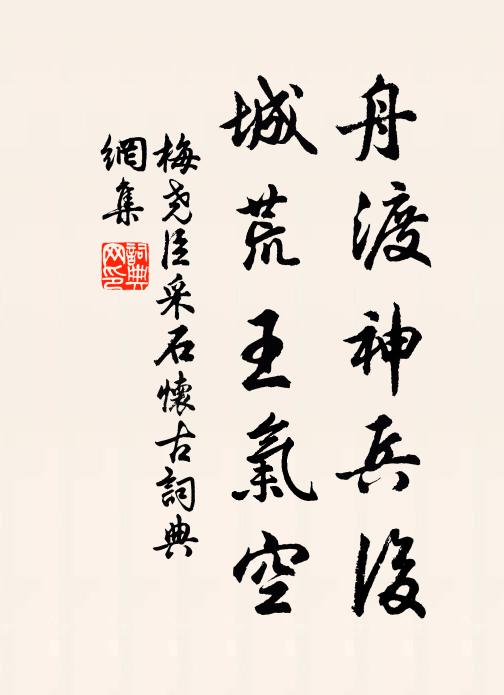 舟渡神兵後
城荒王氣空
梅堯臣采石懷古詞典
網集
詞典
网印